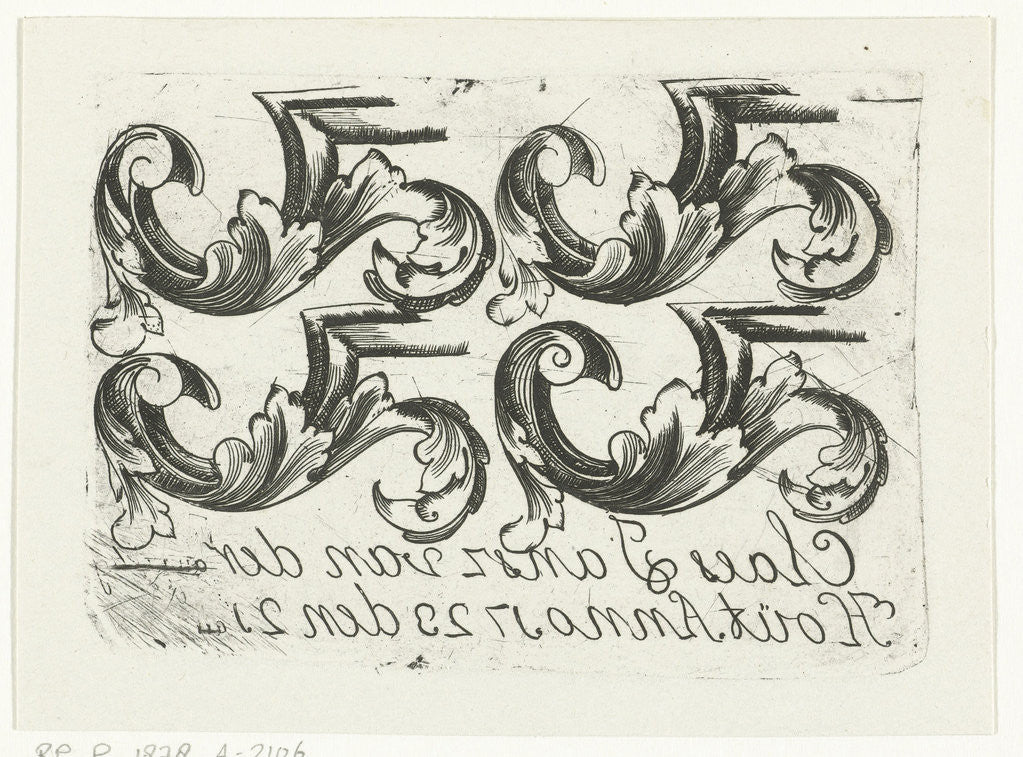 Claes Jansz van der
Hoüt Anno 1723 den 21
RP-P-1878-A-2106